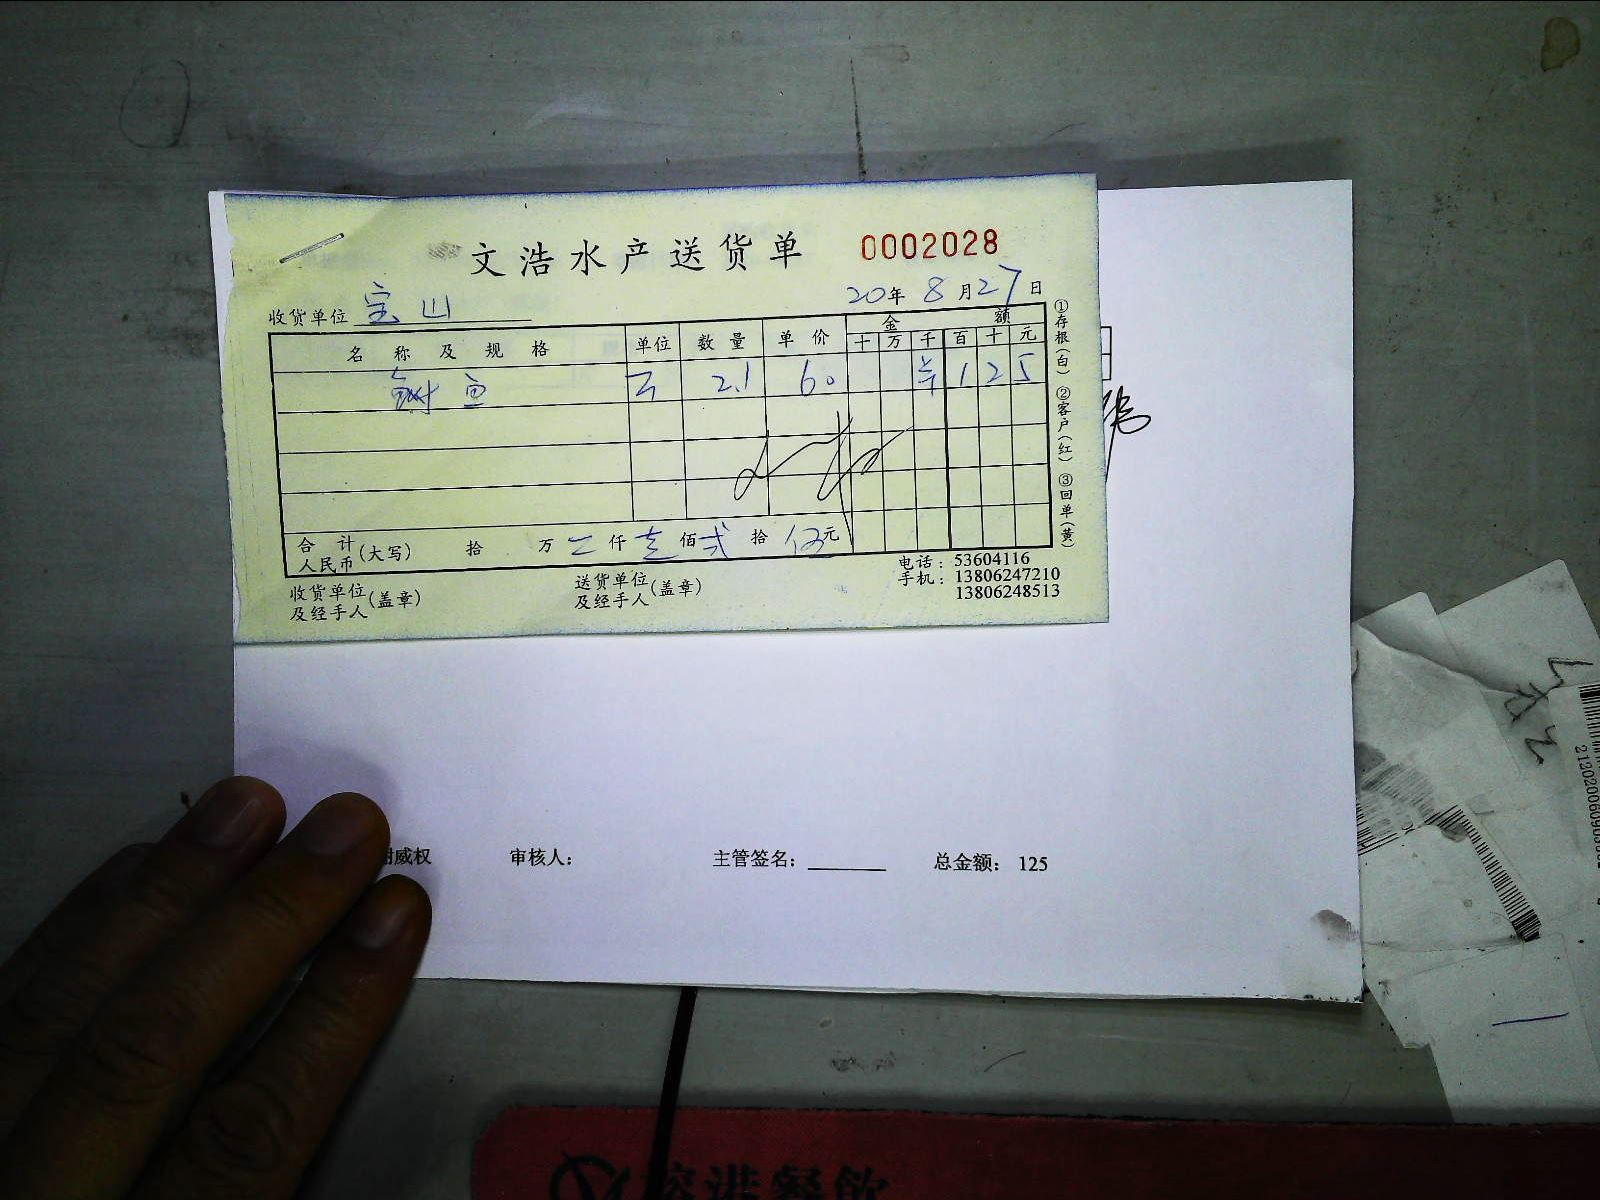 文浩水产送货单 0002028
收货单位 宝山 20年8月27日
名称及规格 单位 数量 单价 金额
十 万 千 百 十 元
鱼 2.1 60 1 2 5
合计人民币(大写) 拾 万 仟 壹 佰 弍 拾 伍 元
收货单位及经手人(盖章) 送货单位及经手人(盖章)
电话:53604116
手机:13806247210
13806248513
①存根(白) ②客户(红) ③回单(黄)
威权 审核人: 主管签名: 总金额: 125
餐飲